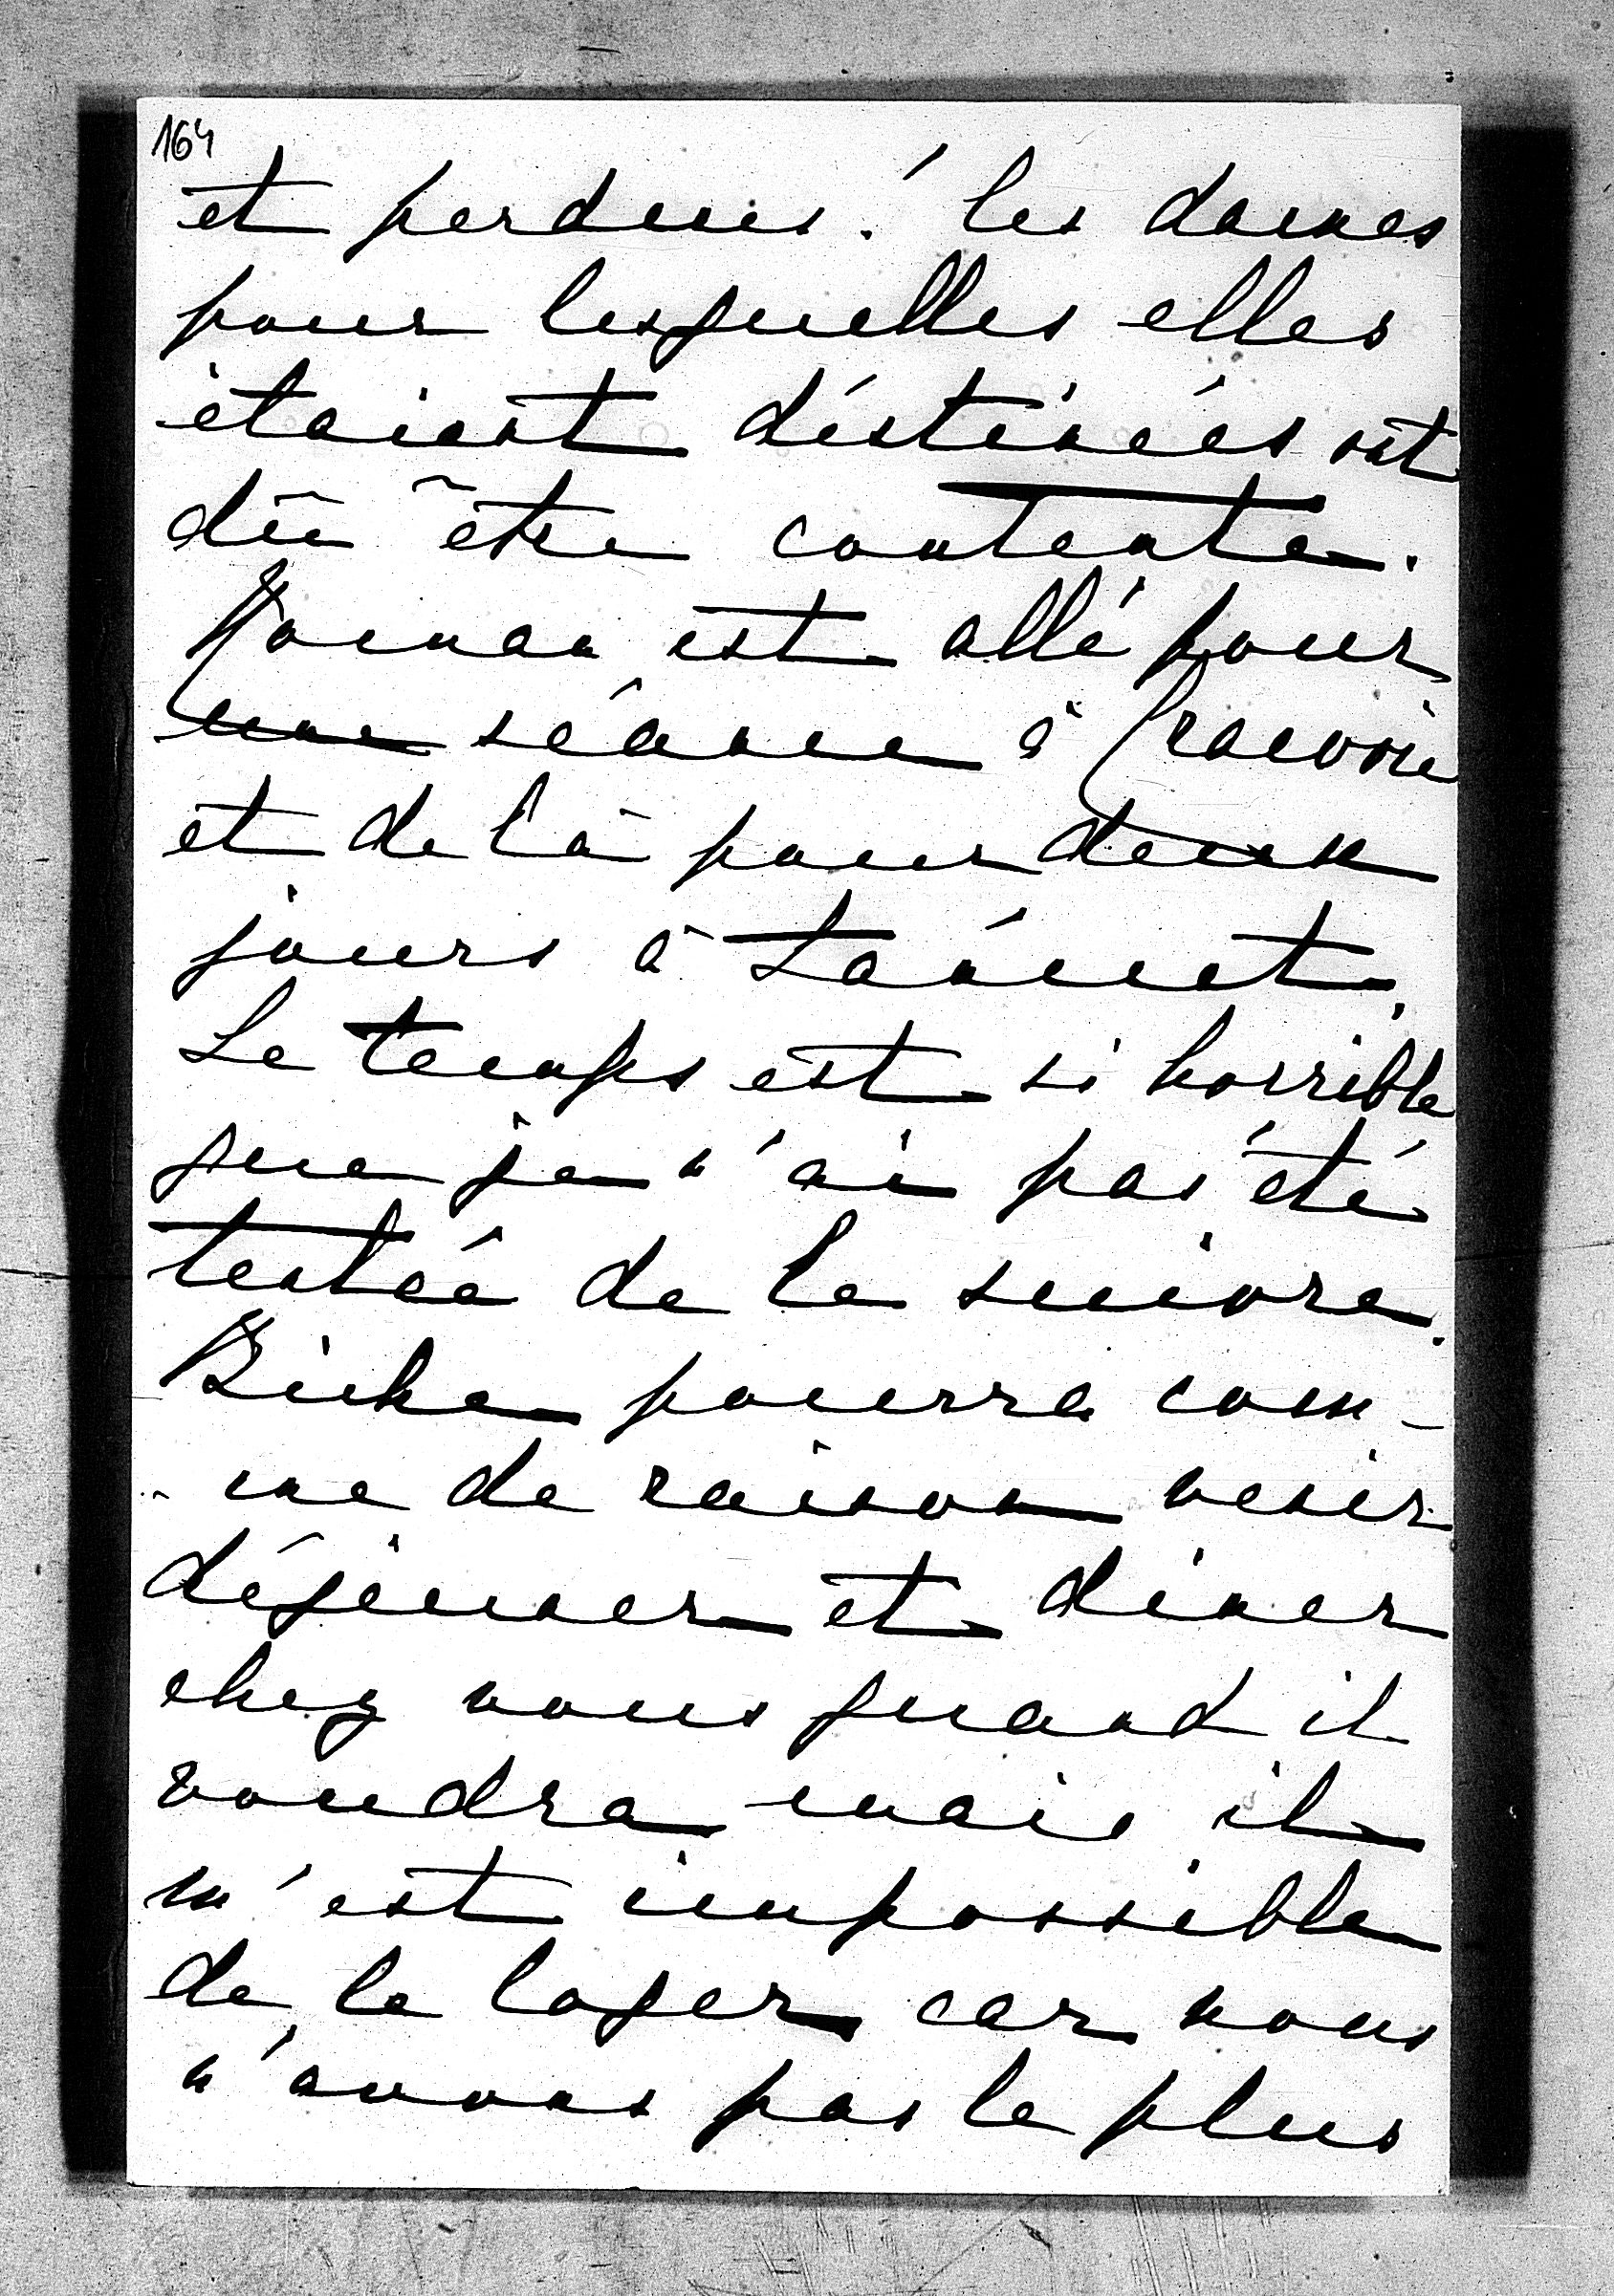 164
et perdues! les dames
pour lesquelles elles
étaient déstinées ont
dû être contente.
Roman est allé pour
une séance à Cracovie
et de là pour deux
jours à Łańcut.
Le temps est si horrible
que je n'ai pas été
tentée de le suivre.
pourra com-
me de raison venir
déjeuner et diner
chez nous quand il
voudra mais il
m'est impossible
de le loger car nous
n'avons pas le plus